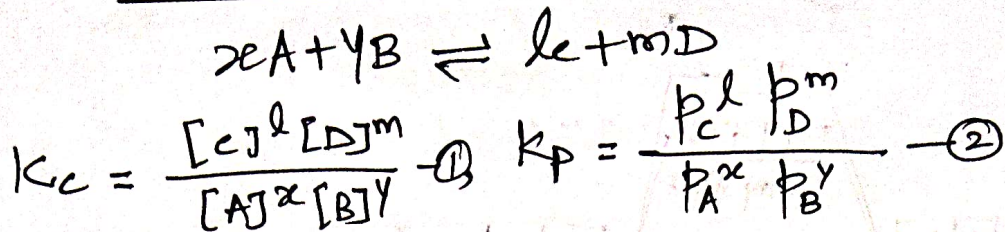 xA + yB ⇌ lC + mD
Kc = [C]^l [D]^m / [A]^x [B]^y —① Kp = p_C^l . p_D^m / p_A^x . p_B^y —②